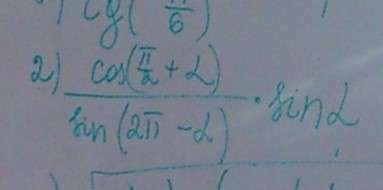 tg(π/6)
2) cos(π/2 + α)
sin(2π - α) · sin α